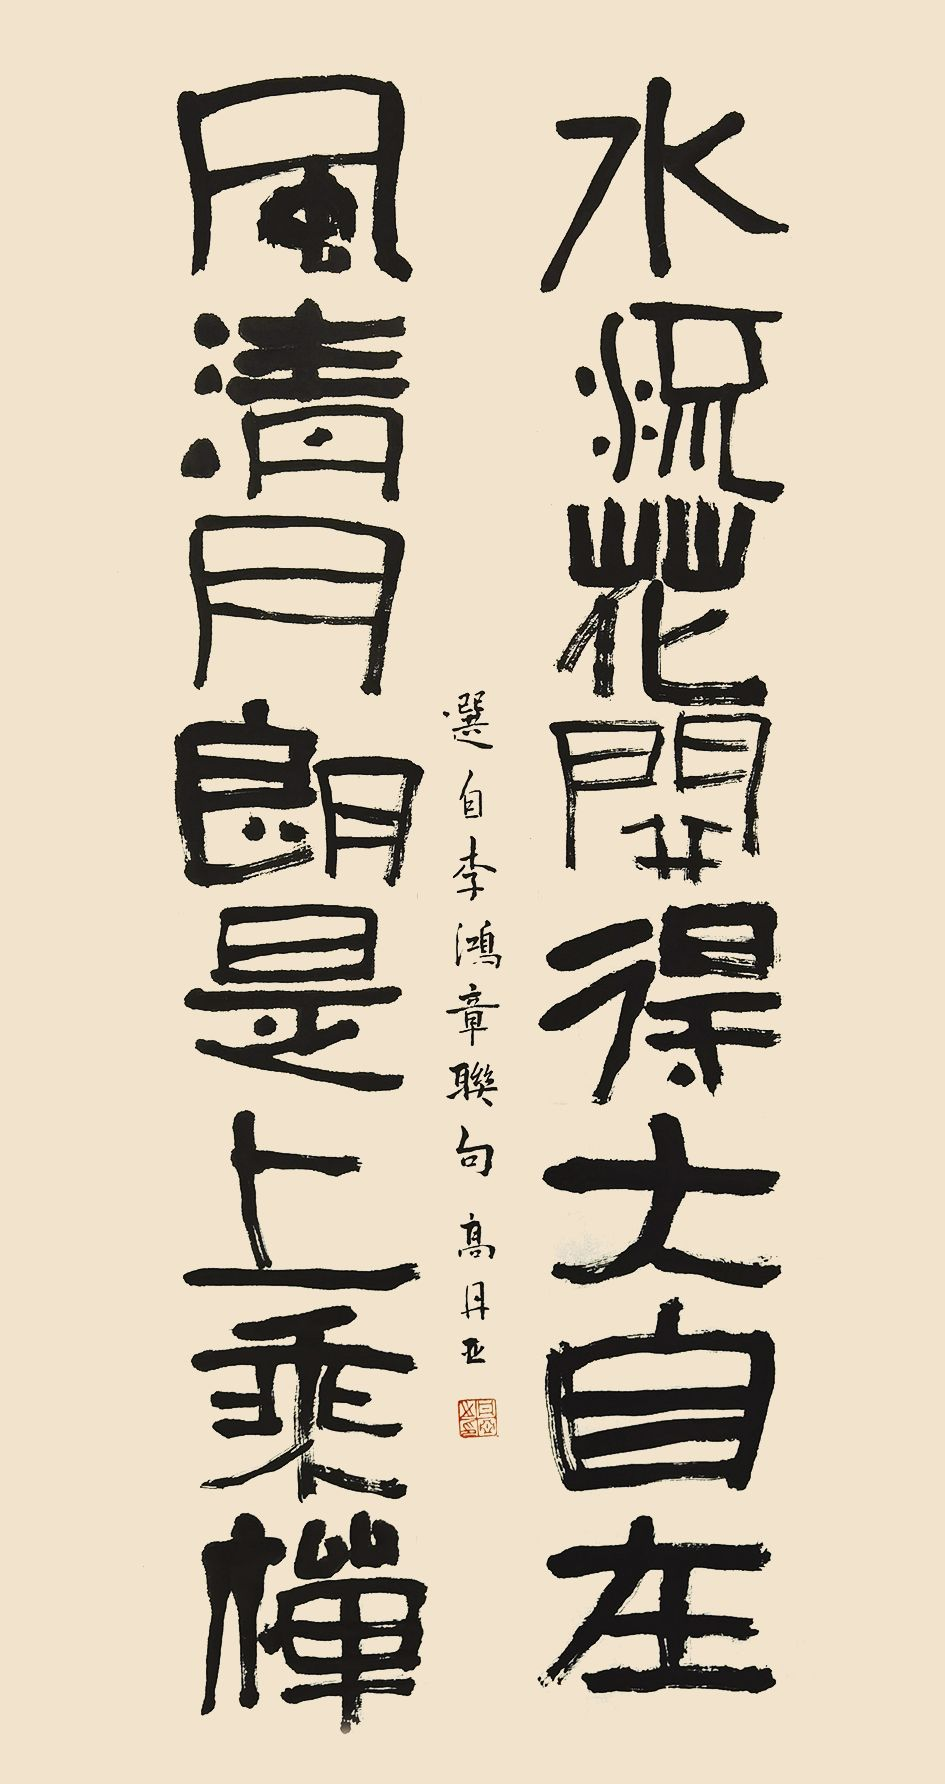 水流花開得大自在
風清月朗是上乘禪
選自李鴻章聯句 高丹亚